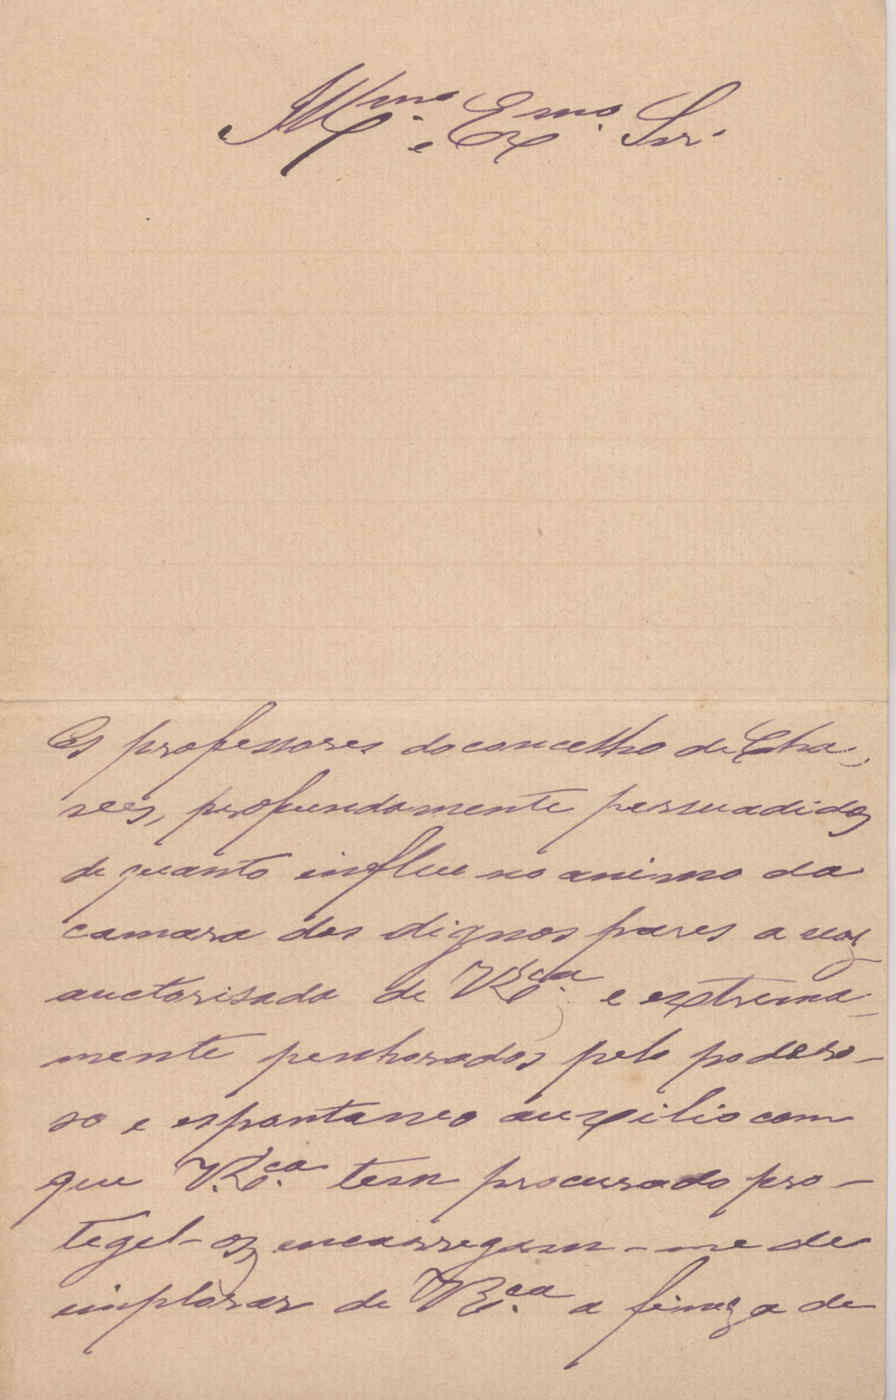 Ill.mo e Ex.mo Snr.
Os professores do concelho de Cha-
ves, profundamente persuadidos
de quanto influe no animo da
camara dos dignos pares a voz
auctorisada de V. Ex.ca e extrema-
mente penhorados pelo podero-
so e espontaneo auxilio com
que V. Ex.ca tem procurado pro-
tegel-os, encarregam-me de
implorar de V. Ex.ca a fineza de